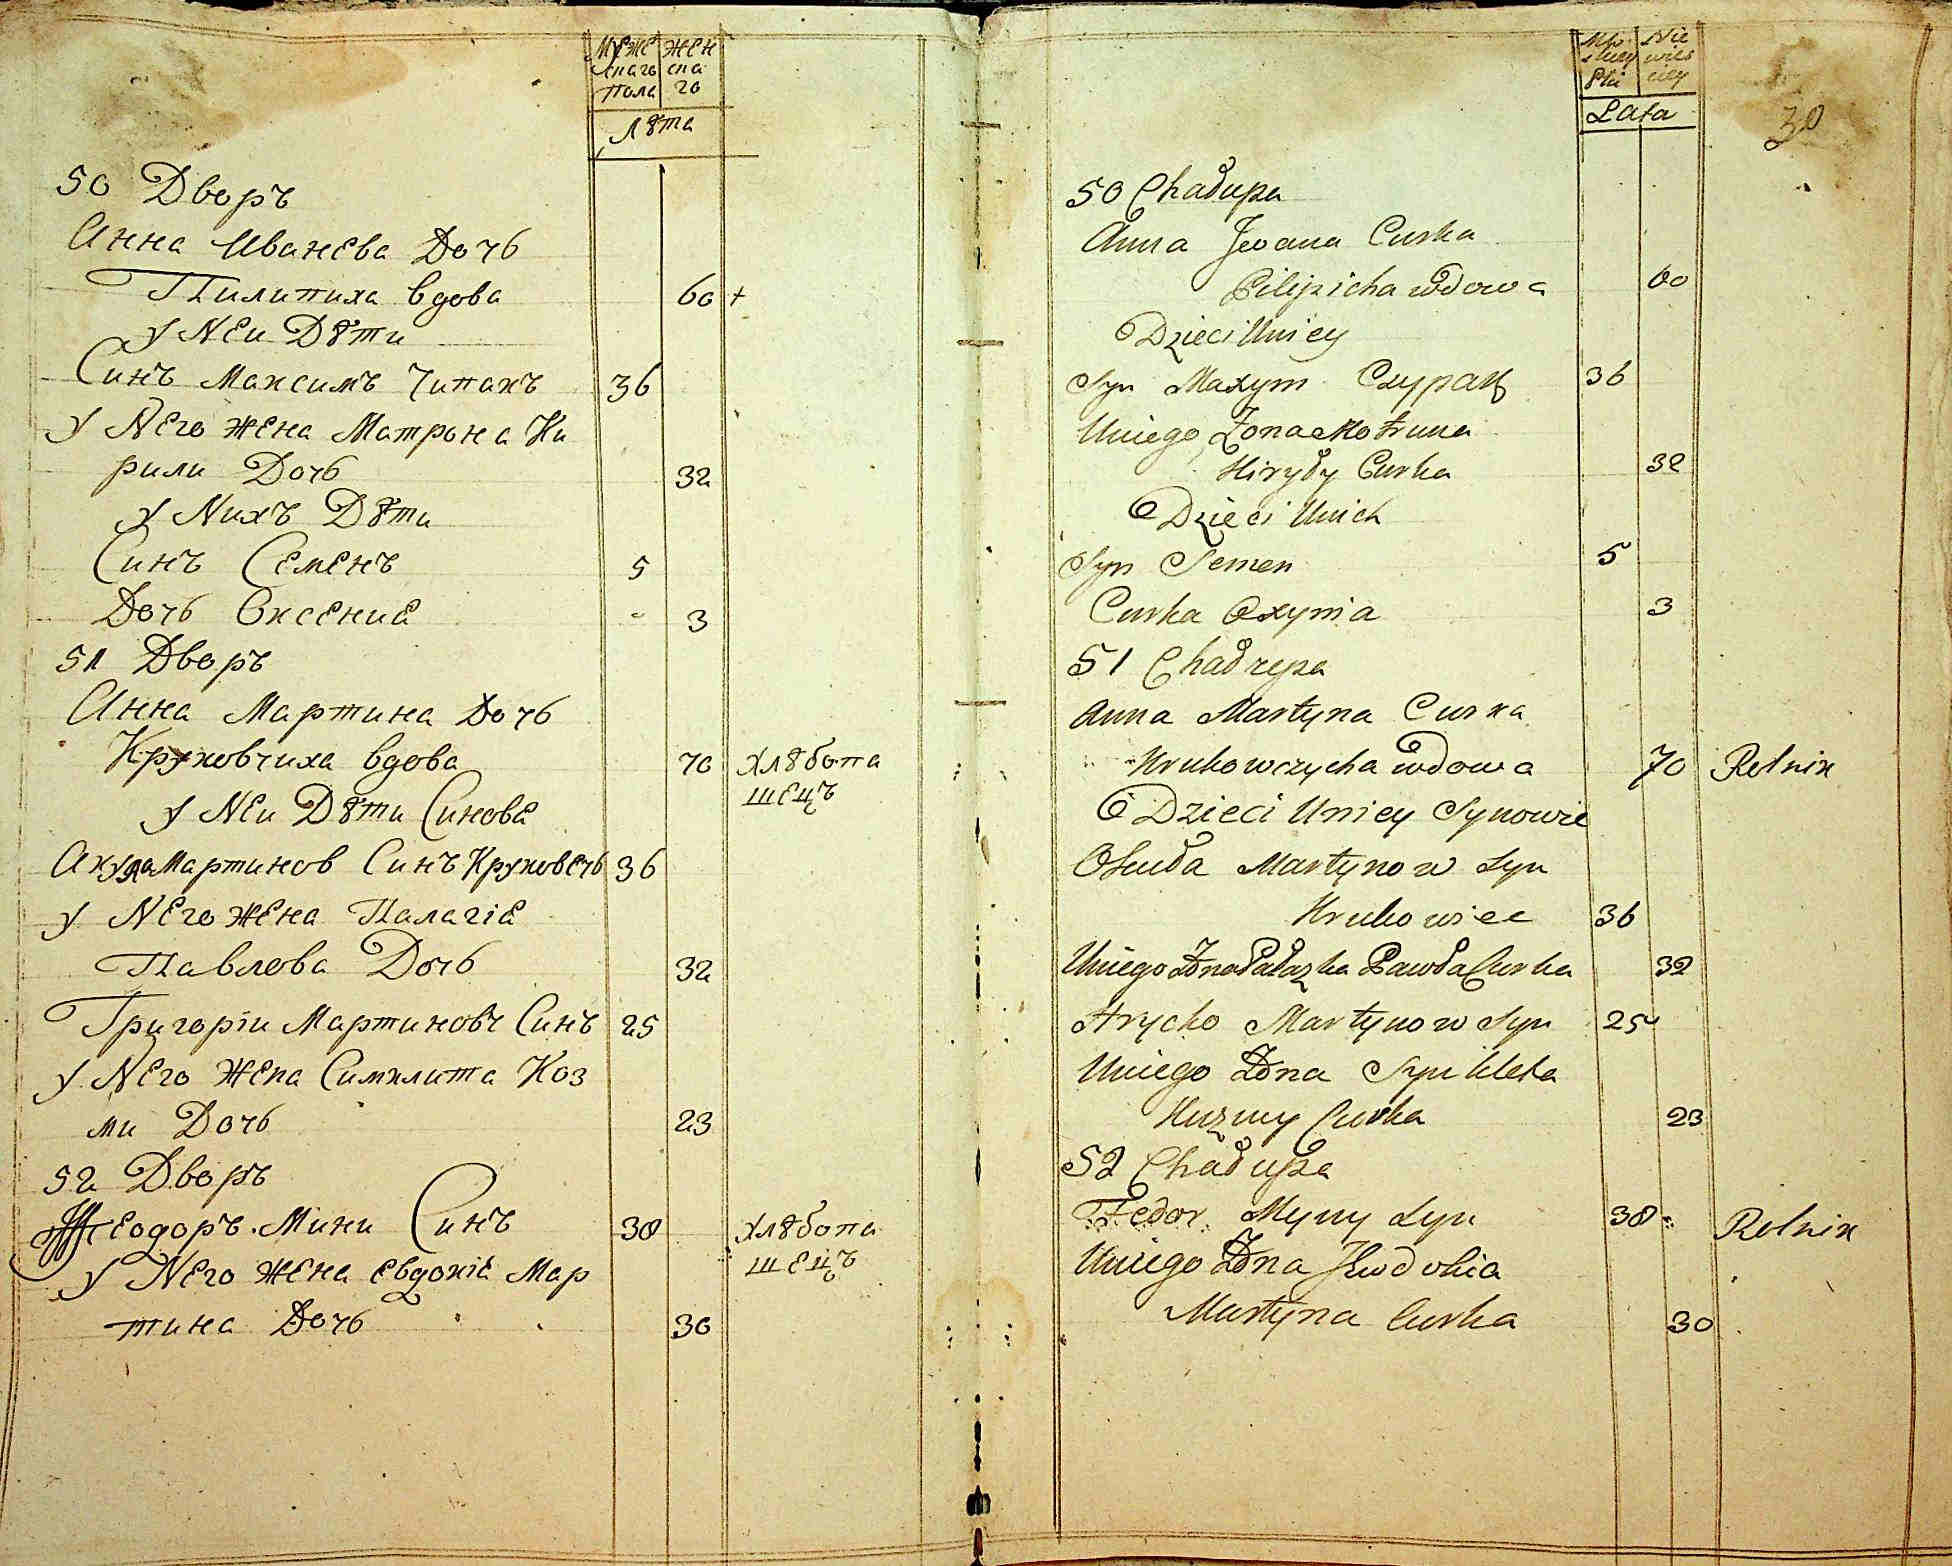 Муже жен
скаго ска
Пола го
Лѣта
50 Дворъ
Анна Иванева Дочь
Пилипиха вдова 60 +
у Неи Дѣти
Синъ Максимъ Чипакъ 36
у Него жена Матрона Ки
рили Дочь 32
у Нихъ Дѣти
Синъ Семенъ 5
Дочь Оксение 3
51 Дворъ
Анна Мартина Дочь
Круковчиха вдова 70 хлѣбопа
шецъ
у Неи Дѣти Синове
Акула Мартинов Синъ Круковець 36
у Него жена Палагіе
Павлова Дочь 32
Григоріи Мартиновъ Синъ 25
у Него жена Симклита Коз
ми Дочь 23
52 Дворъ
Феодоръ Мини Синъ 38 хлѣбопа
шецъ
у Него жена Евдокіе Мар
тина Дочь 30
30
Lata
50 Chałupa
Anna Iwana Curka
Pilipicha wdowa 60
Dzieci Uniey
Syn Maxym Czypak 36
Uniego Zona Motruna
Kiryły Curka 32
Dzieci Unich
Syn Semen 5
Curka Oxynia 3
51 Chałupa
Anna Martyna Curka
Krukowczycha wdowa 70 Rolnik
Dzieci Uniey Synowie
Martynow Syn
Krukowiec 36
Uniego Zona Pałazka Pawła Curka 32
Hrycko Martynow Syn 25
Uniego Zona Symkleta
Kuzmy Curka 23
52 Chałupa
Fedor Myny Syn 38 Rolnik
Uniego Zona Jewdokia
Martyna Curka 30